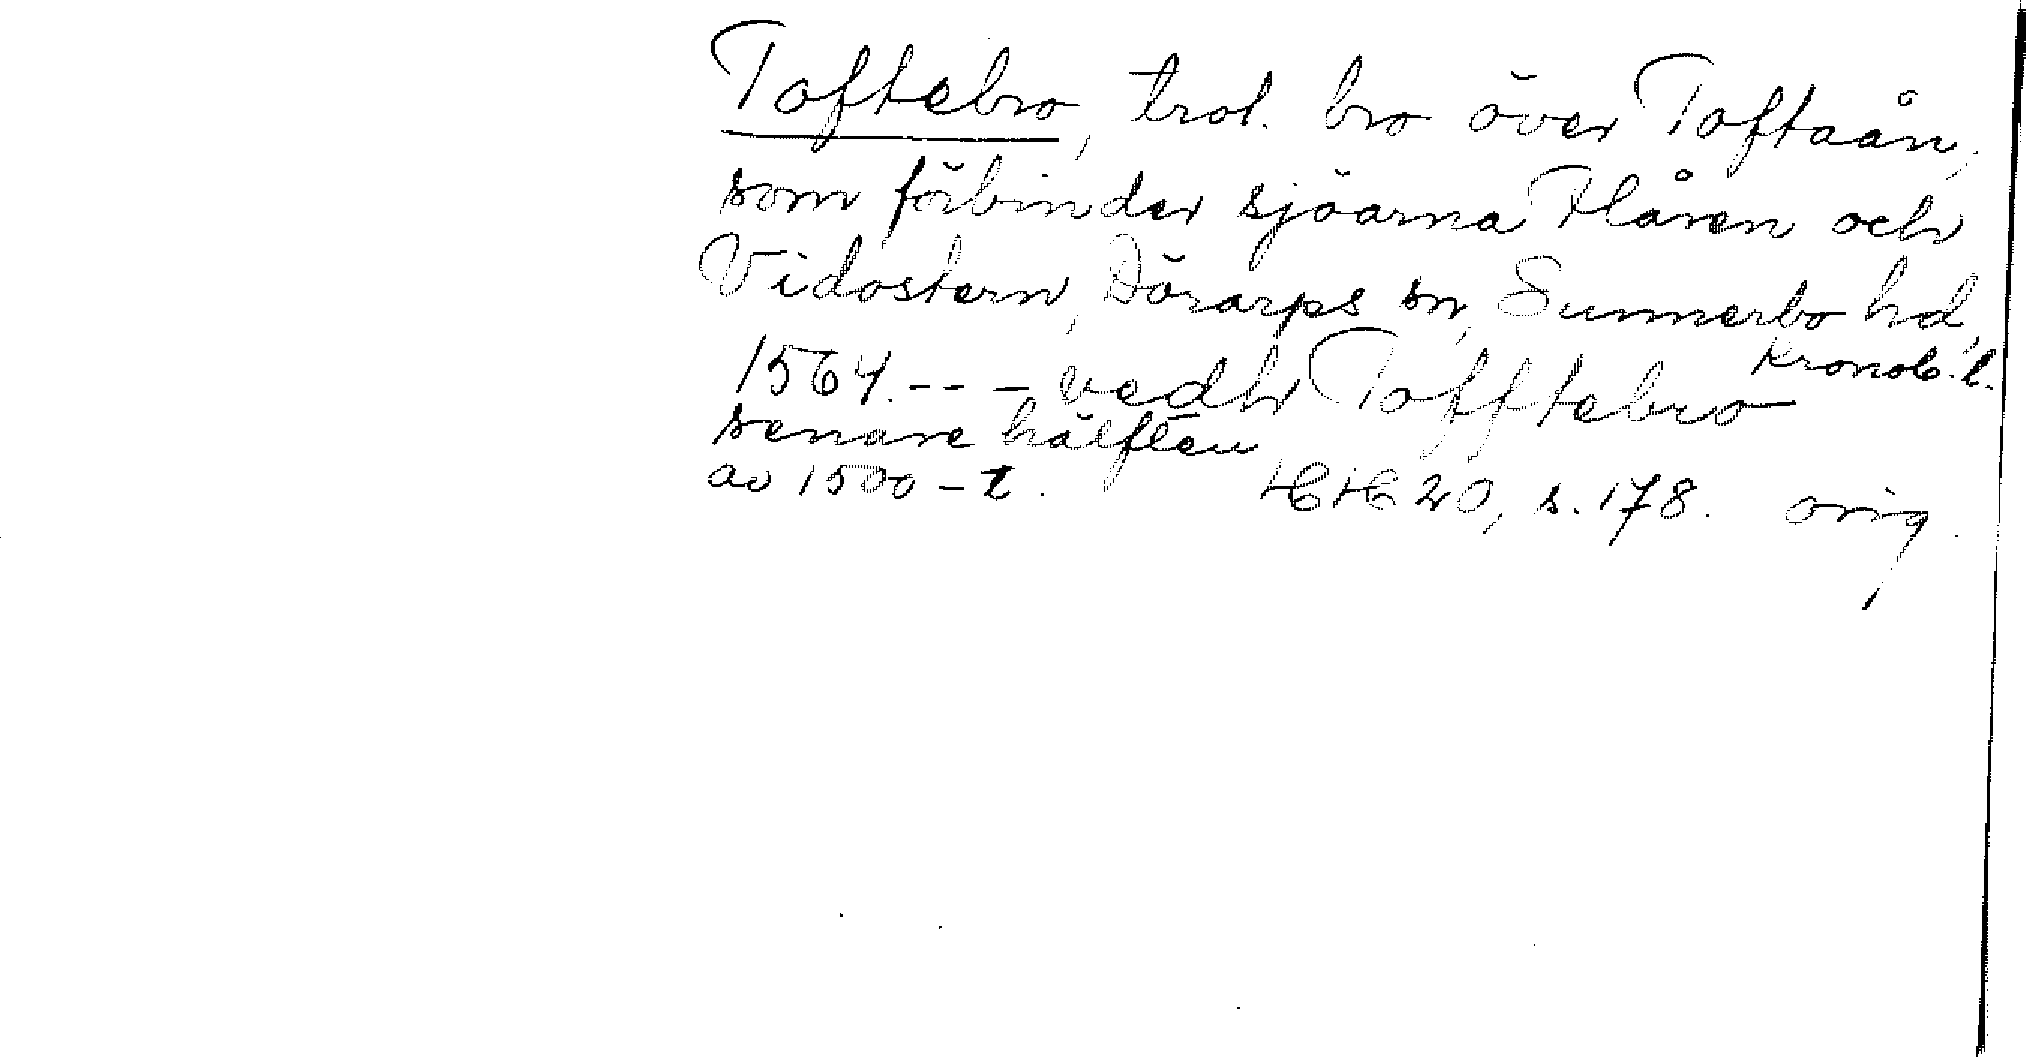 Toftebro, trol. bro över Toftaån,
som förbinder sjöarna Flåren och
Vidöstern, Dörarps sn, Sunnerbo hd,
Kronob. l.
1564. - - - vedh Tofftebro
senare hälften
av 1500-t. HH 20, s. 178. orig.